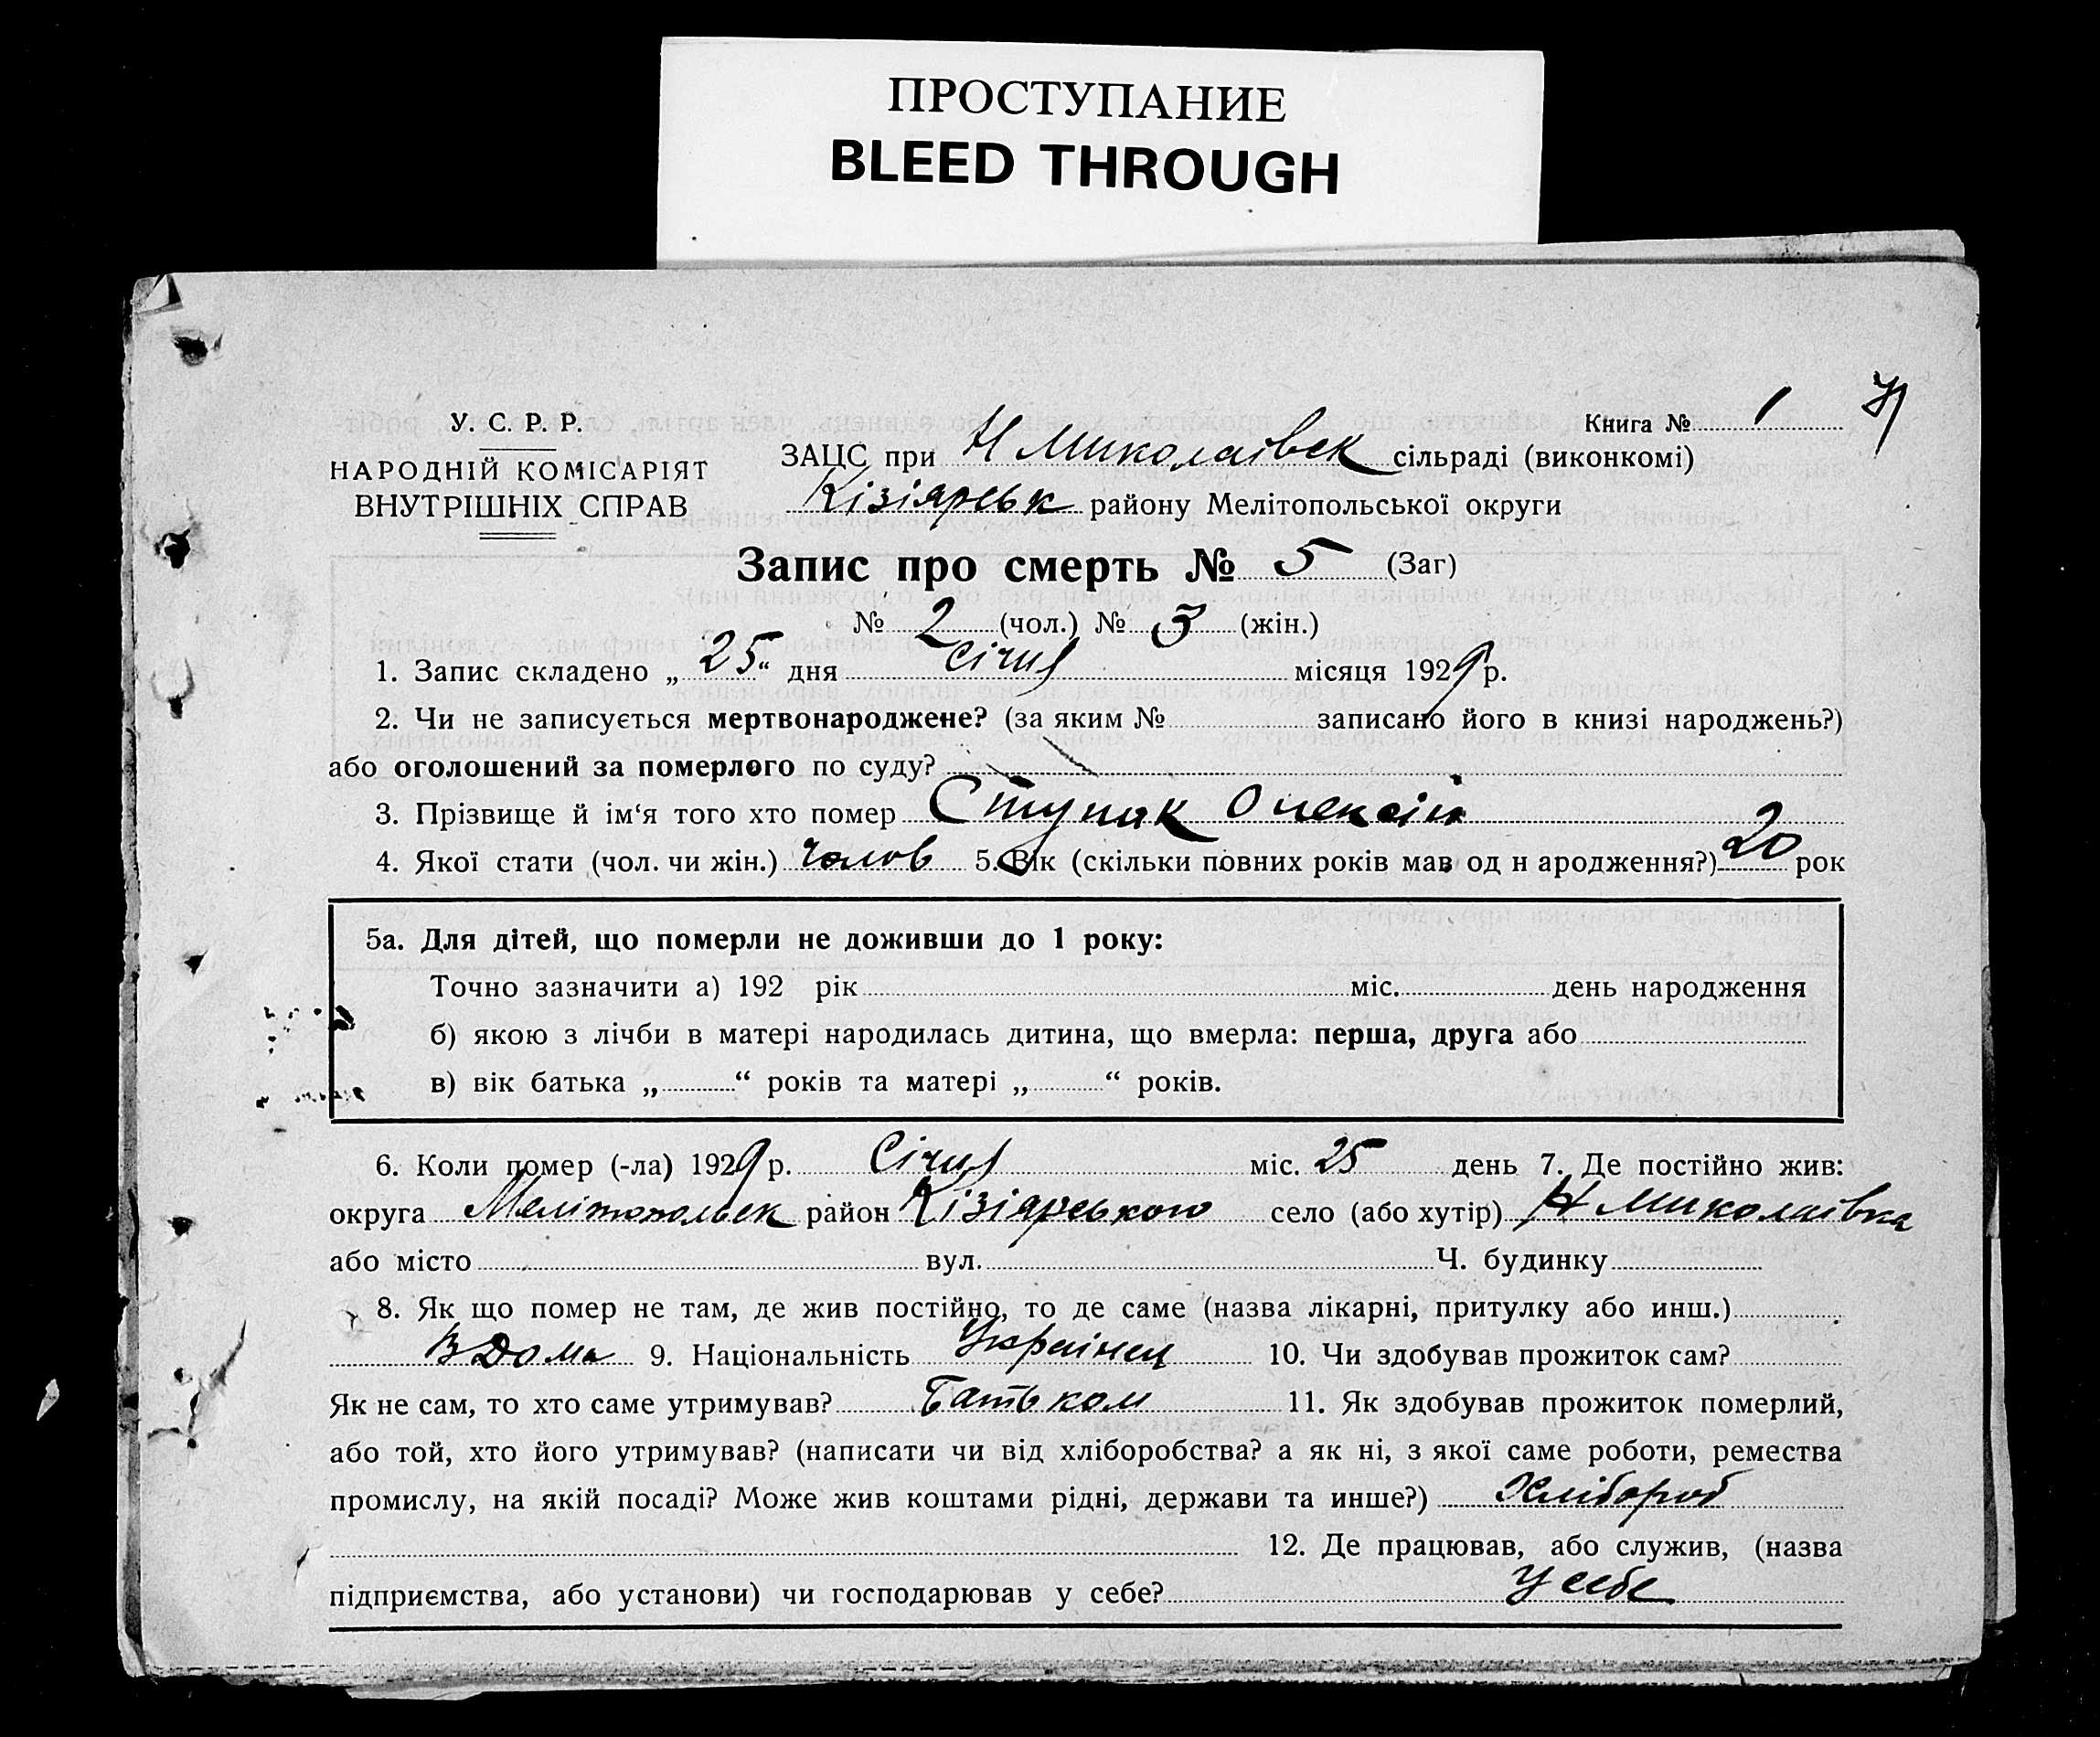 ПРОСТУПАНИЕ
BLEED THROUGH
У. С. Р. Р.
НАРОДНІЙ КОМІСАРІЯТ
ВНУТРІШНІХ СПРАВ
Книга № 1
ЗАЦС при Н Миколаівск сільраді (виконкомі)
Кізіярськ району Мелітопольської округи
Запис про смерть № 5 (Заг)
№ 2 (чол.) № 3 (жін.)
1. Запис складено „ 25 “ дня Січня місяця 1929 р.
2. Чи не записується мертвонароджене? (за яким № записано його в книзі народжень?)
або оголошений за померлого по суду?
3. Прізвище й ім‘я того хто помер Ступак Олексій
4. Якої стати (чол. чи жін.) Чолов 5. Вік (скільки повних років мав од н ародження?) 20 рок
5а. Для дітей, що померли не доживши до 1 року:
Точно зазначити а) 192 рік міс. день народження
б) якою з лічби в матері народилась дитина, що вмерла: перша, друга або
в) вік батька „ “ років та матері „ “ років.
6. Коли помер (-ла) 1929 р. Січня міс. 25 день 7. Де постійно жив:
округа Мелітопольск район Кізіярського село (або хутір) Н Миколаівка
або місто вул. Ч. будинку
8. Як що помер не там, де жив постійно, то де саме (назва лікарні, притулку або инш.)
В Дома 9. Національність Украінец 10. Чи здобував прожиток сам?
Як не сам, то хто саме утримував? Батьком 11. Як здобував прожиток померлий,
або той, хто його утримував? (написати чи від хліборобства? а як ні, з якої саме роботи, ремества
промислу, на якій посаді? Може жив коштами рідні, держави та инше?) Хлібороб
12. Де працював, або служив, (назва
підприємства, або установи) чи господарював у себе? У себе